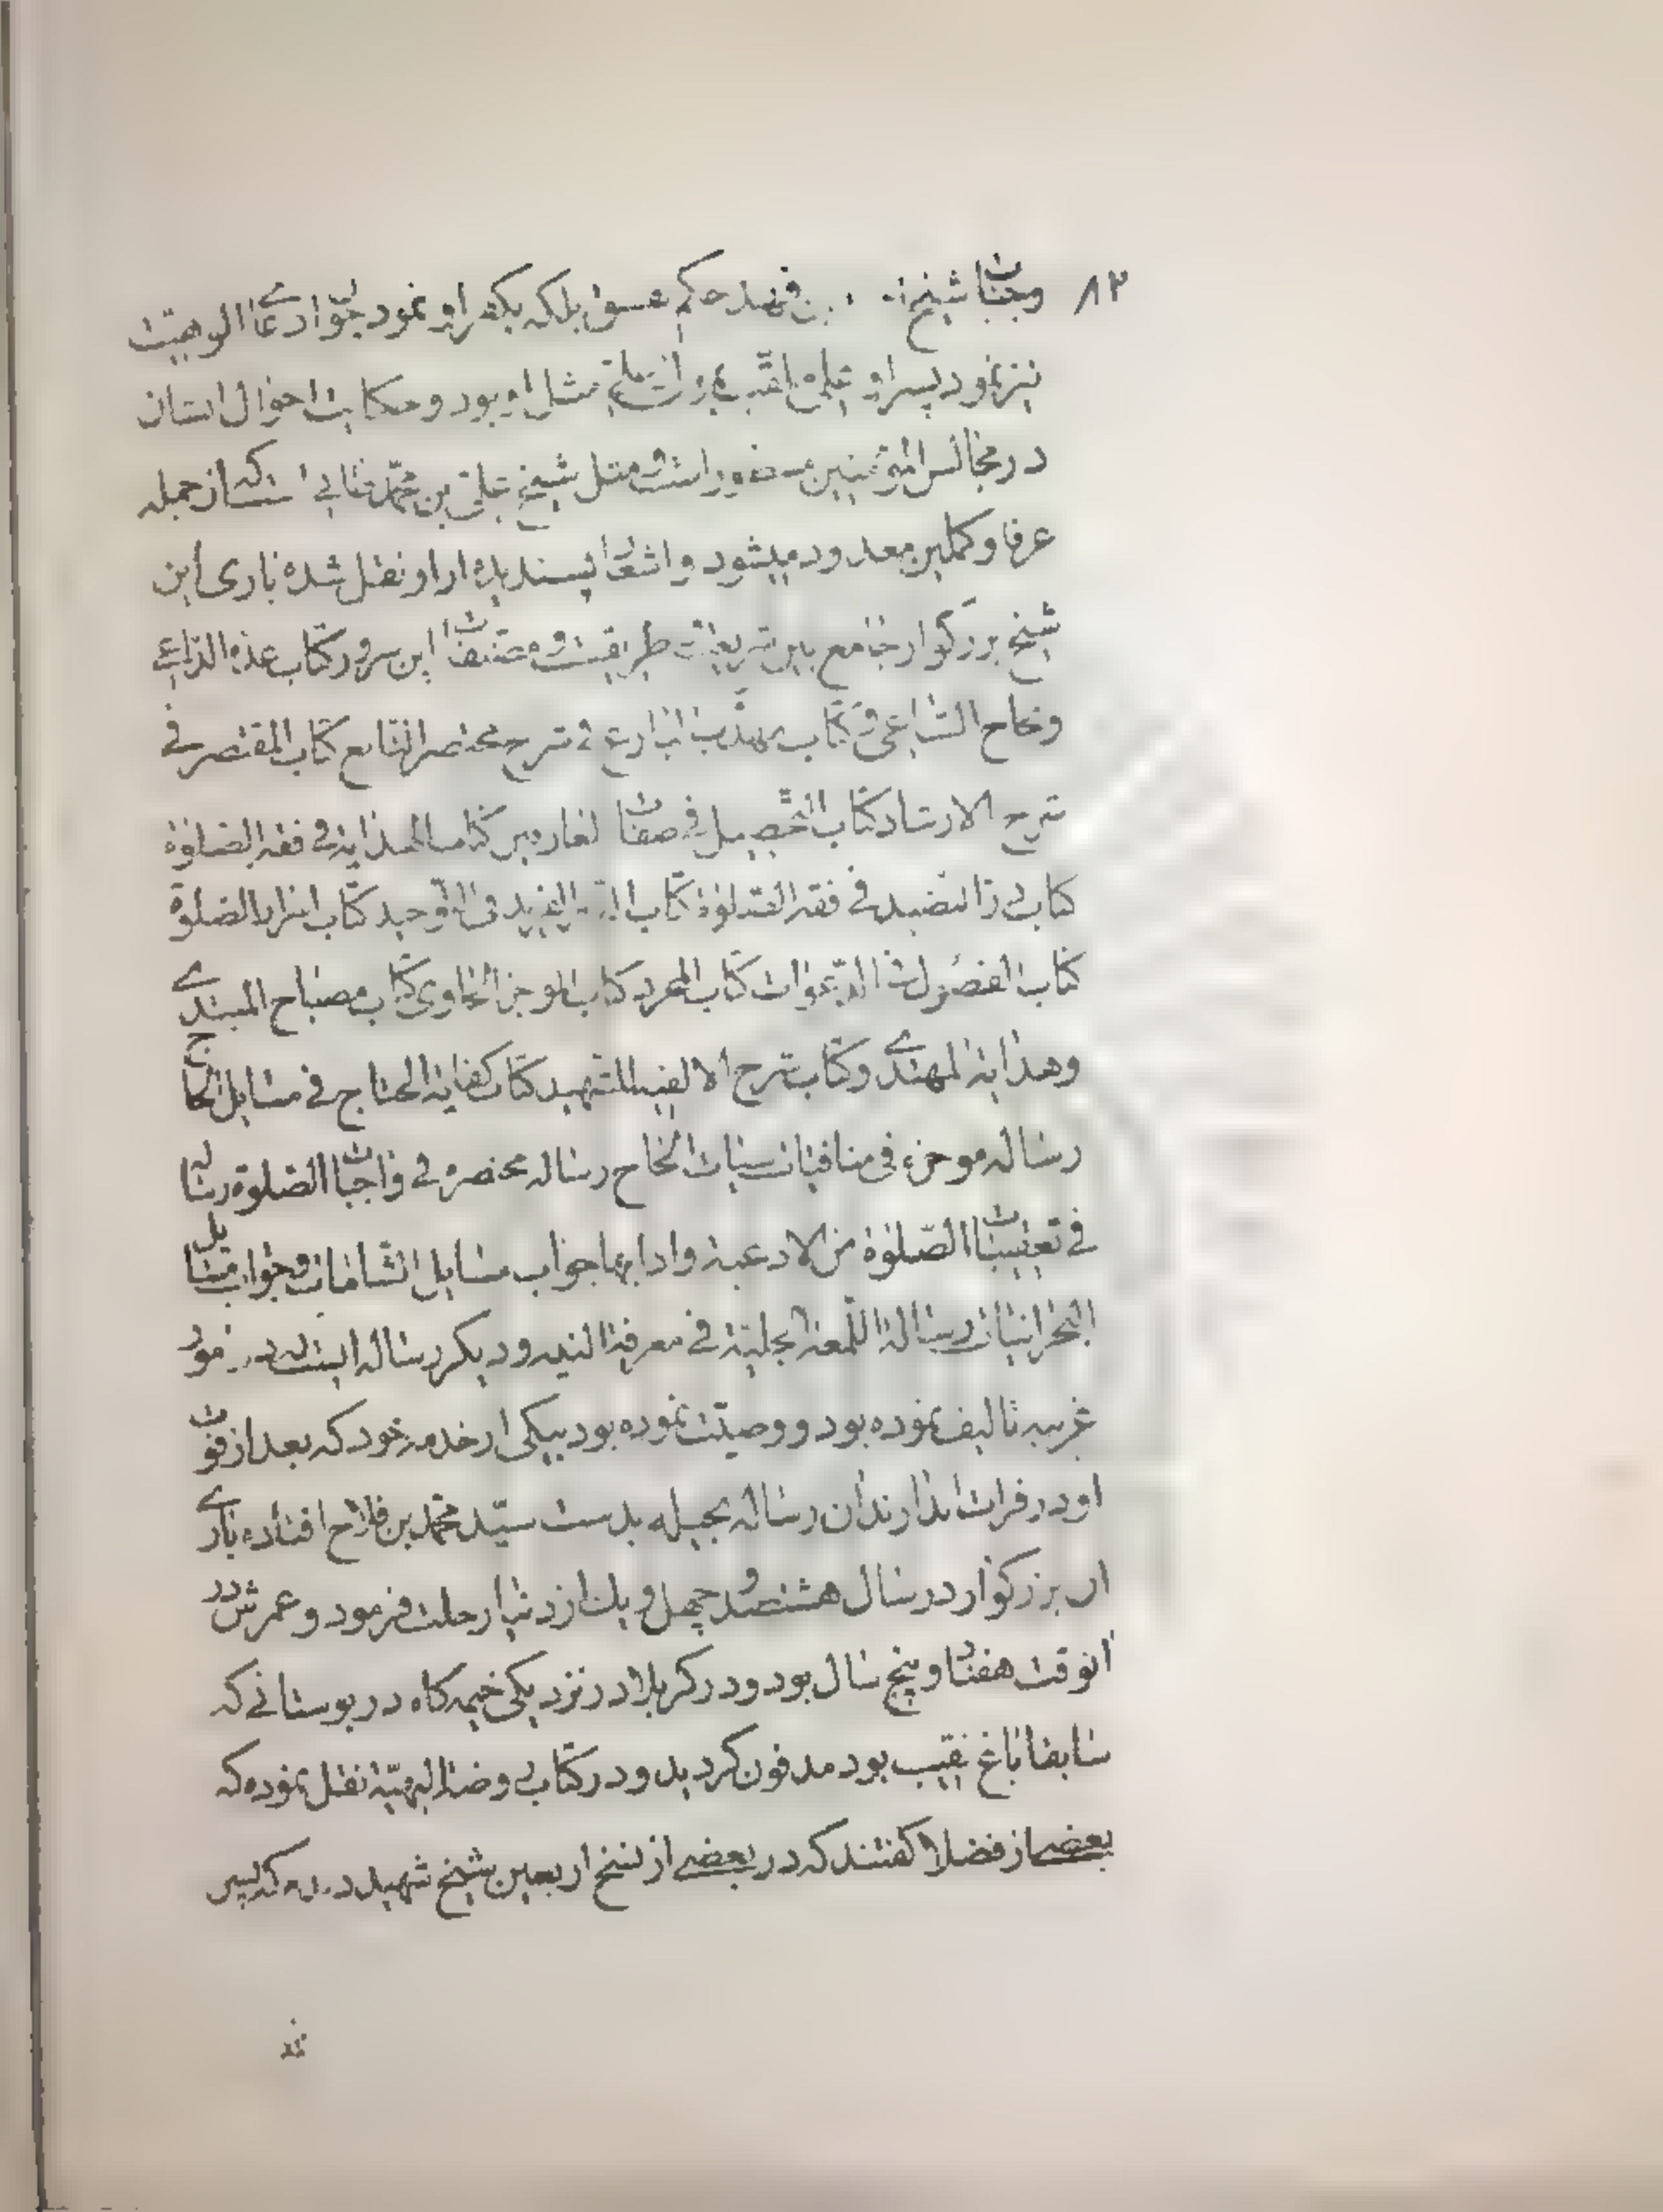 ۸۳ وجناب شیخ بن فهد حکم بفسق بلکه بکفر او نمود چون ادعای الوهیت
نیز نمود پسر او علی مثل او بود و حکایت احوال ایشان
در مجالس المؤمنین است و مثل شیخ علی بن محمد طائی است که از جمله
عرفا و کملین معدود میشود و اشعار پسندیده از او نقل شده باری این
شیخ بزرکوار جامع بین شریعت طریقت و مصنفات این سرور کتاب عدة الداعی
ونجاح الساعی و کتاب مهذب البارع فی شرح مختصر النافع کتاب المقتصر فی
شرح الارشاد کتاب التحصیل فی صفات العارفین کتاب الهدایة فی فقه الصلوة
کتاب در النضید فی فقه الصلوة کتاب الفرید فی التوحید کتاب اسرار الصلوة
کتاب الفصول فی الدعوات کتاب المحرر کتاب الموجز الحاوی کتاب مصباح المبتدی
وهدایة المهتدی و کتاب شرح الالفیه للشهید کتاب کفایة المحتاج فی مسایل الحاج
رساله موجزه فی منافیات نیات الحاج رساله مختصره فی واجبات الصلوة رساله
فی تعقیبات الصلوة من الادعیة وادابها جواب مسایل الشامیات و جواب مسایل
البحرانیات رسالة اللمعة الجلیة فی معرفة النیه و دیکر رساله ایست که در امور
غریبه تالیف نموده بود و وصیت نموده بود بیکی از خدمه خود که بعد از فوت
او در فرات اندازند آن رساله بحیله بدست سید محمد بن فلاح افتاده باری
آن بزرکوار در سال هشتصد و چهل و یک از دنیا رحلت فرمود و عمرش در
آنوقت هفتاد و پنج سال بود و در کربلا در نزدیکی خیمه کاه در بوستانی که
سابقا باغ نقیب بود مدفون کردید و در کتاب روضة البهیة نقل نموده که
بعضی از فضلا کفتند که در بعضی از نسخ اربعین شیخ شهید دیده که پسر